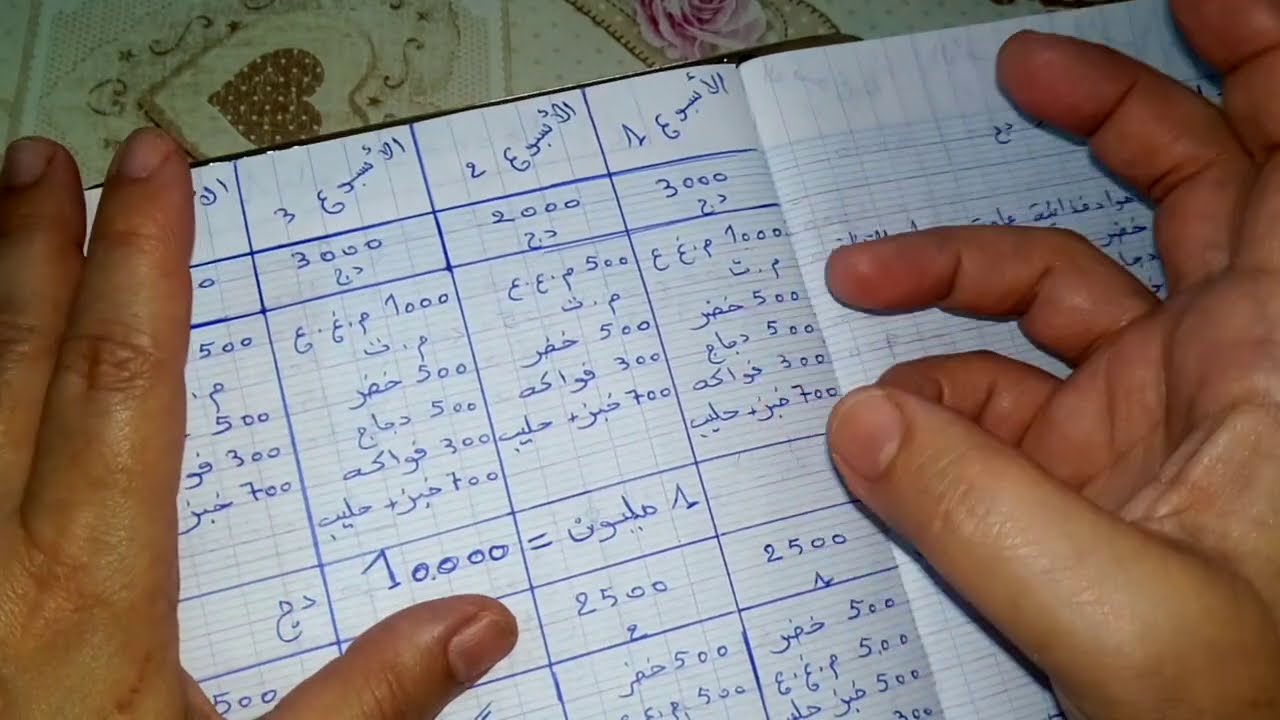 الأسبوع 1
3000
دج
1000 م.غ.ع
م.ت
500 خضر
500 دجاج
300 فواكه
700 خبز + حليب
الأسبوع 2
2000
دج
500 م.غ.ع
م.ت
500 خضر
300 فواكه
700 خبز + حليب
الأسبوع 3
3000
دج
1000 م.غ.ع
م.ت
500 خضر
500 دجاج
300 فواكه
700 خبز + حليب
500
م.
500
300 فو
700 خبز
1 مليون = 10.000
دج
2500
1
500 خضر
500 م.غ.ع
500 خبز حليب
300
2500
2
500 خضر
500 م.غ.ع
500
دج
خضر